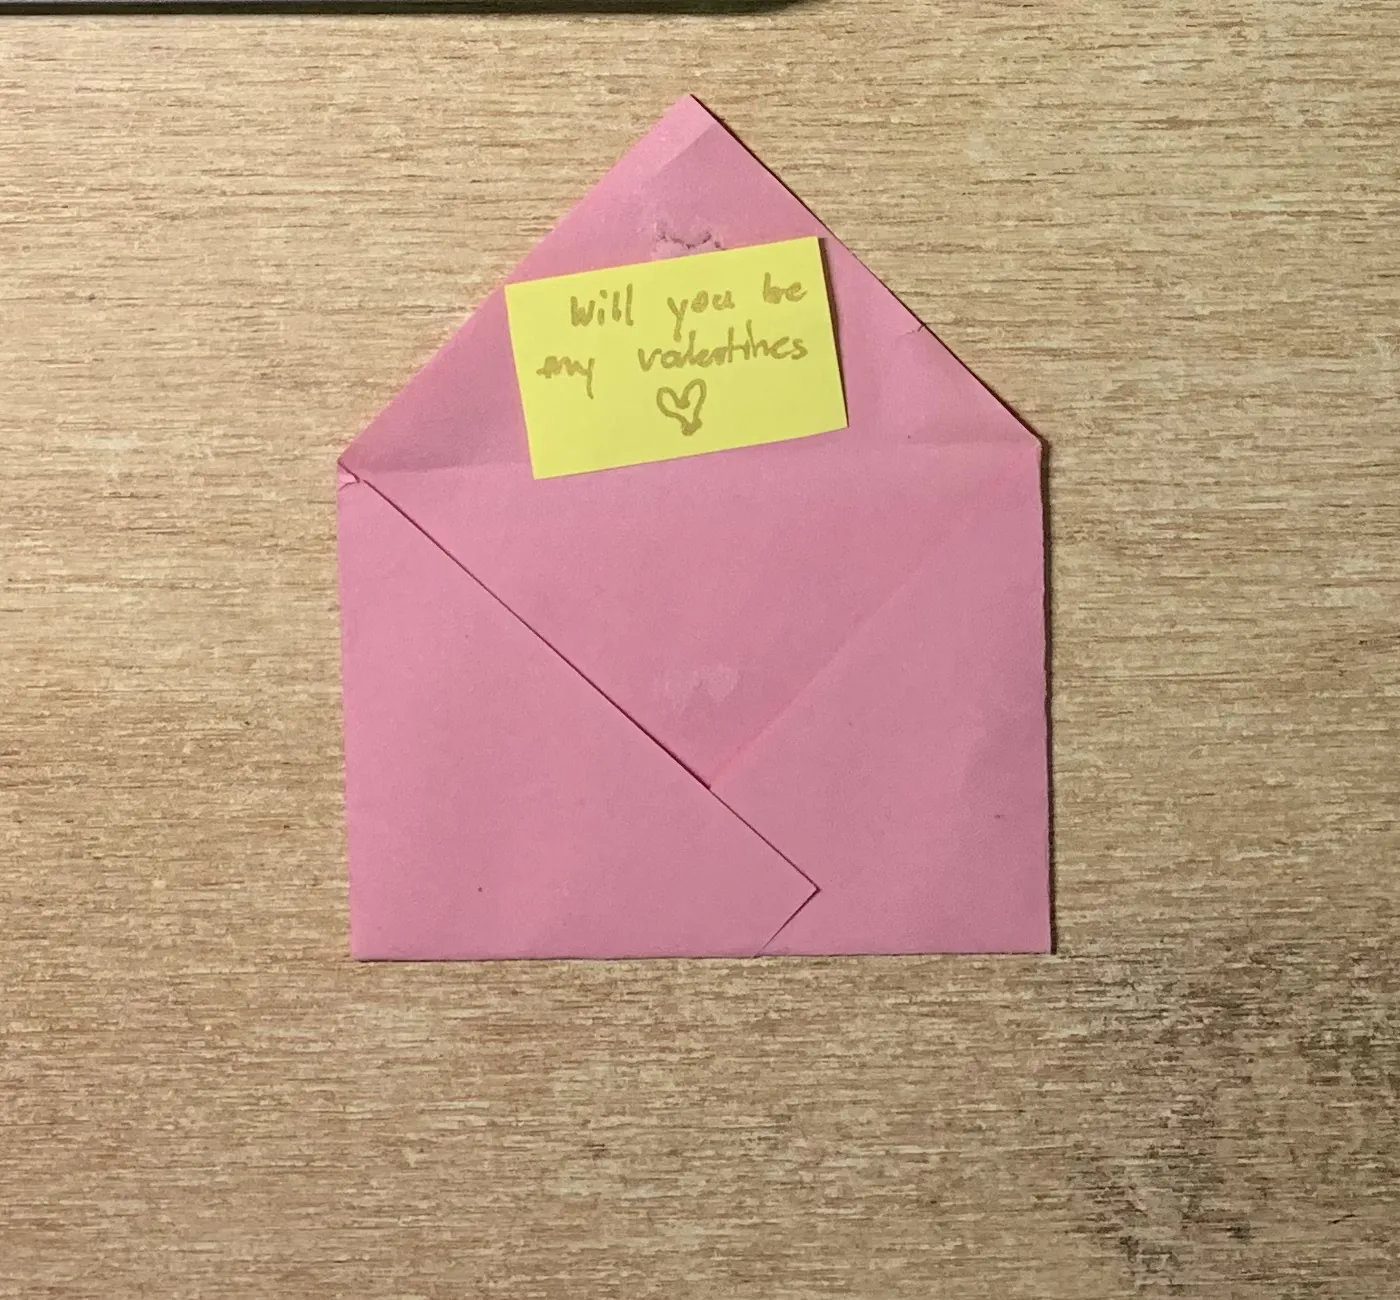 Will you be
my valentines